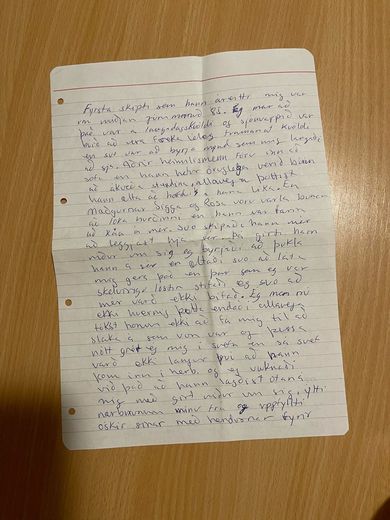 Fyrsta skipti sem hann áreitti mig var
um miðjan 85. Ég man að
það var á laugardagskvöldi og sjónvarpið var
búið að vera fram að kvöldi
en svo var að byrja mynd sem mig langaði
að sjá. Aðrir heimilismenn fóru inn að
sofa en hann hefur örugglega verið búinn
að ákveða, allavega þóttist
hann ætla að horfa á hana líka. En
mæðgurnar Sigga og Rósa voru varla búnar
að loka hurðinni en hann var farin
að káfa á mér. Svo skipaði hann mér
að leggjast hjá sér. Þá girti hann
niður um sig og byrjaði að pukla
hann á sér en ætlaði svo að láta
mig gera það en þar sem ég var
skelfingu lostin stífnaði ég svo að
mér varð ekki bifað. Ég man nú
ekki hvernig þetta endaði allavega
tókst honum ekki að fá mig til að
slaka á sem von var og þessa
nótt grét ég mig í svefn en sá svefn
varð ekki langur því að hann
kom inn í herb. og ég vaknaði
við það að hann lagðist ofaná
mig með girt niður um sig, ýtti
nærbuxunum mínum frá og uppfyllti
óskir sínar með hendurnar fyrir